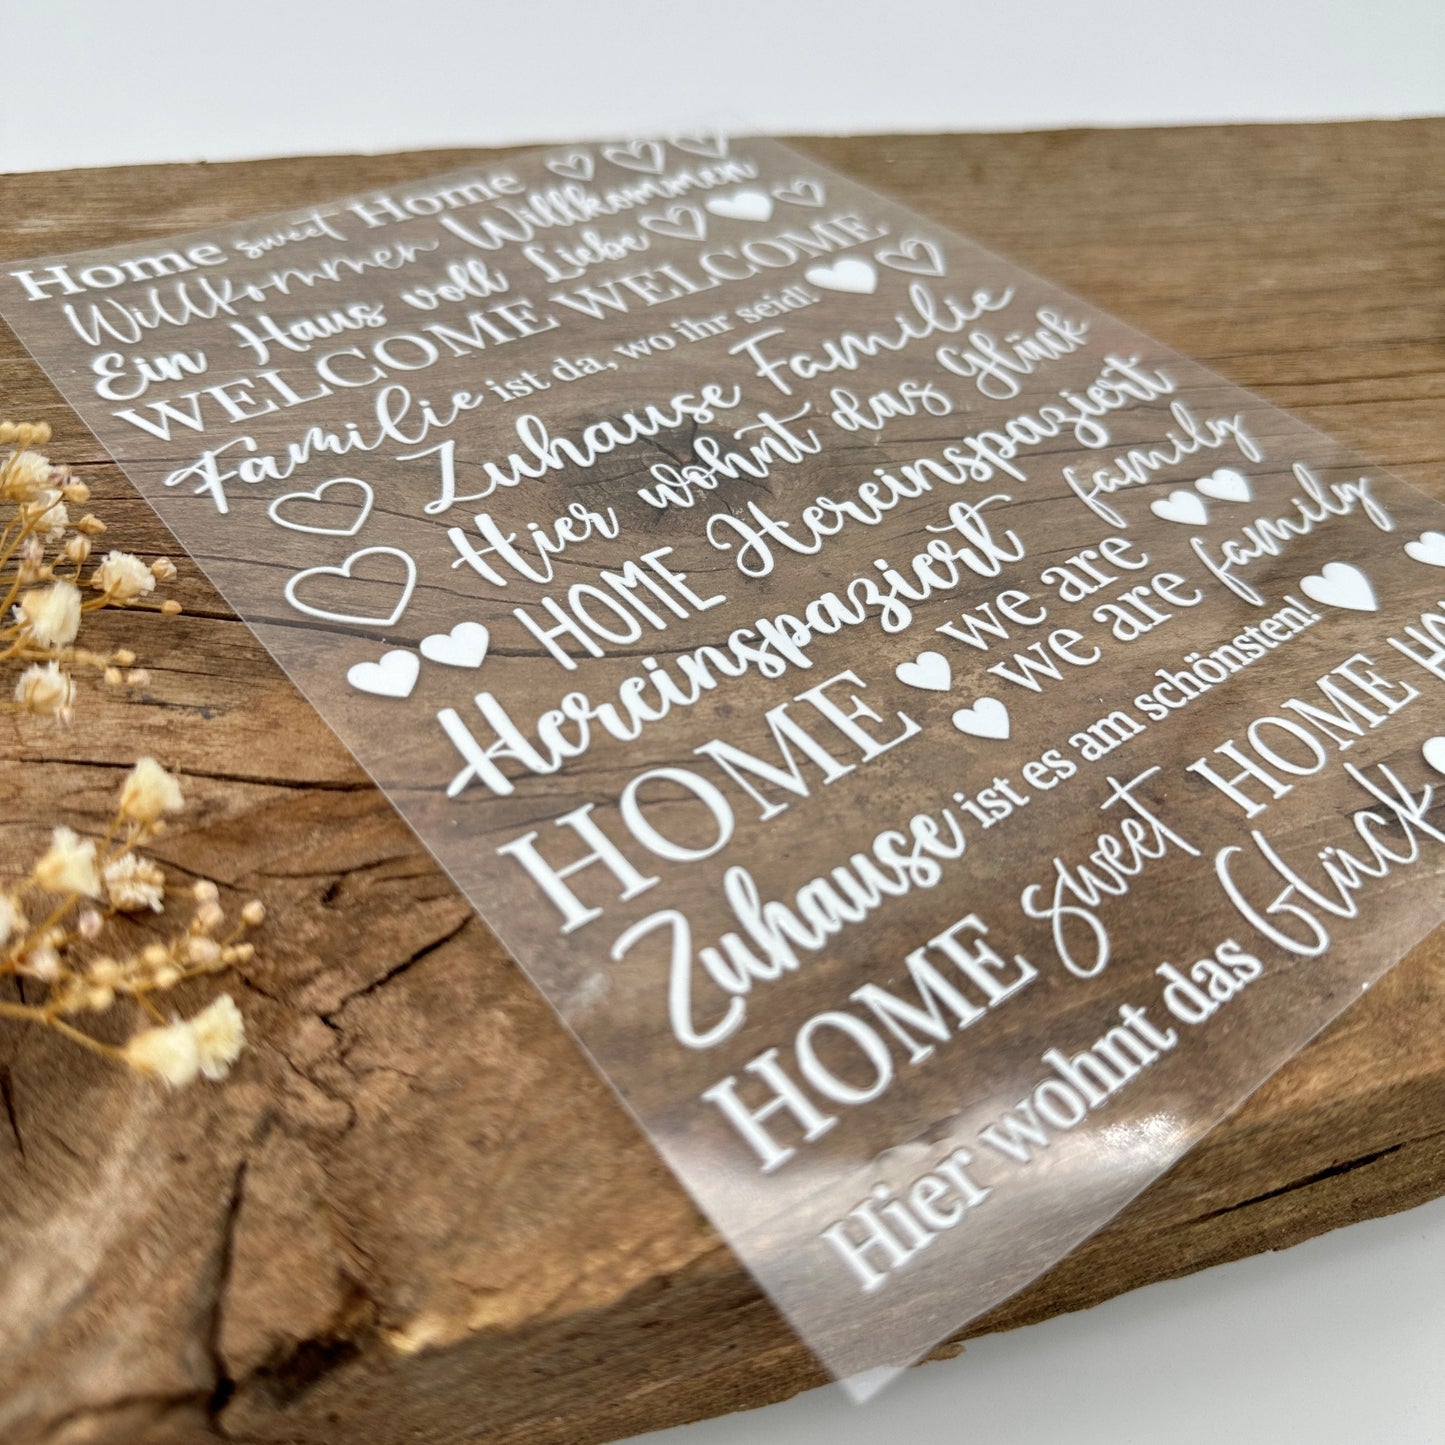 Home sweet Home
Willkommen Willkommen
Ein Haus voll Liebe
WELCOME WELCOME
Familie ist da, wo ihr seid!
Zuhause Familie
Hier wohnt das Glück
HOME Hereinspaziert
Hereinspaziert family
HOME we are
we are family
Zuhause ist es am schönsten!
HOME sweet HOME HO
Hier wohnt das Glück